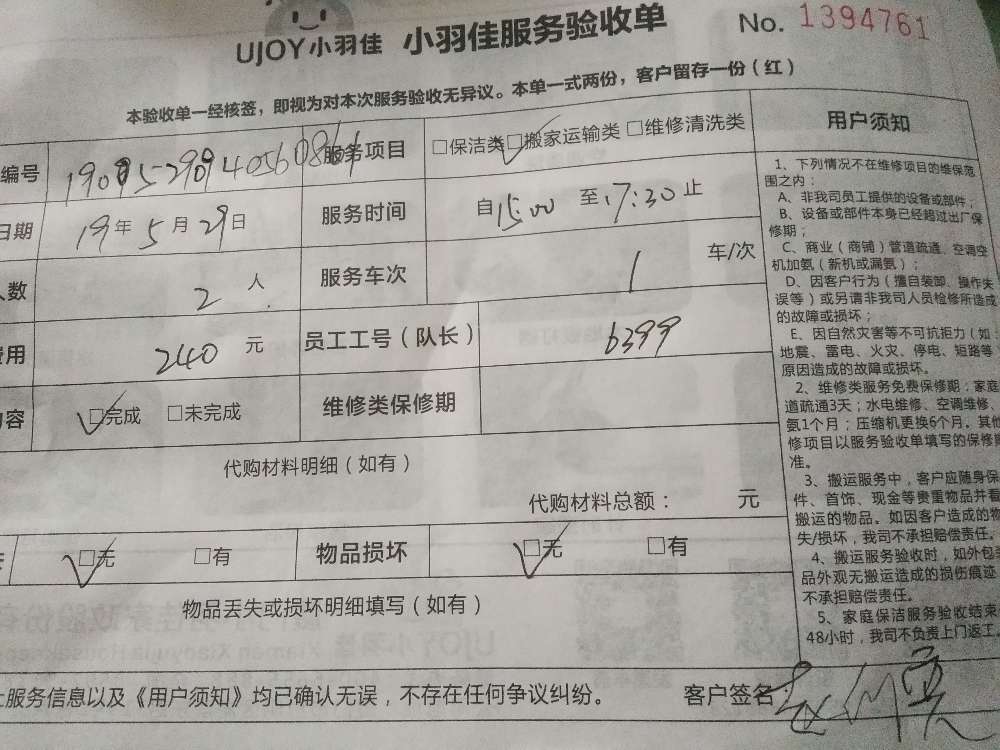 UJOY小羽佳 小羽佳服务验收单 No. 1394761
本验收单一经核签，即视为对本次服务验收无异议。本单一式两份，客户留存一份（红）
编号 服务项目 □保洁类 □搬家运输类 □维修清洗类
日期 19年5月29日 服务时间 自15:00 至17:30止
人数 2 人 服务车次 1 车/次
费用 240 元 员工工号（队长） 6399
内容 □完成 □未完成 维修类保修期
代购材料明细（如有）
代购材料总额： 元
□无 □有 物品损坏 □无 □有
物品丢失或损坏明细填写（如有）
上服务信息以及《用户须知》均已确认无误，不存在任何争议纠纷。 客户签名：
用户须知
1、下列情况不在维修项目的维保范
围之内：
A、非我司员工提供的设备或部件；
B、设备或部件本身已经超过出厂保
修期；
C、商业（商铺）管道疏通、空调空
机加氨（新机或漏氨）；
D、因客户行为（擅自装卸、操作失
误等）或另请非我司人员检修所造成
的故障或损坏；
E、因自然灾害等不可抗拒力（如：
地震、雷电、火灾、停电、短路等
原因造成的故障或损坏。
2、维修类服务免费保修期：家庭
道疏通3天；水电维修、空调维修、
氨1个月；压缩机更换6个月。其他
修项目以服务验收单填写的保修期
准。
3、搬运服务中，客户应随身保
件、首饰、现金等贵重物品并看
搬运的物品。如因客户造成的物
失/损坏，我司不承担赔偿责任。
4、搬运服务验收时，如外包装
品外观无搬运造成的损伤痕迹
不承担赔偿责任。
5、家庭保洁服务验收结束
48小时，我司不负责上门返工。